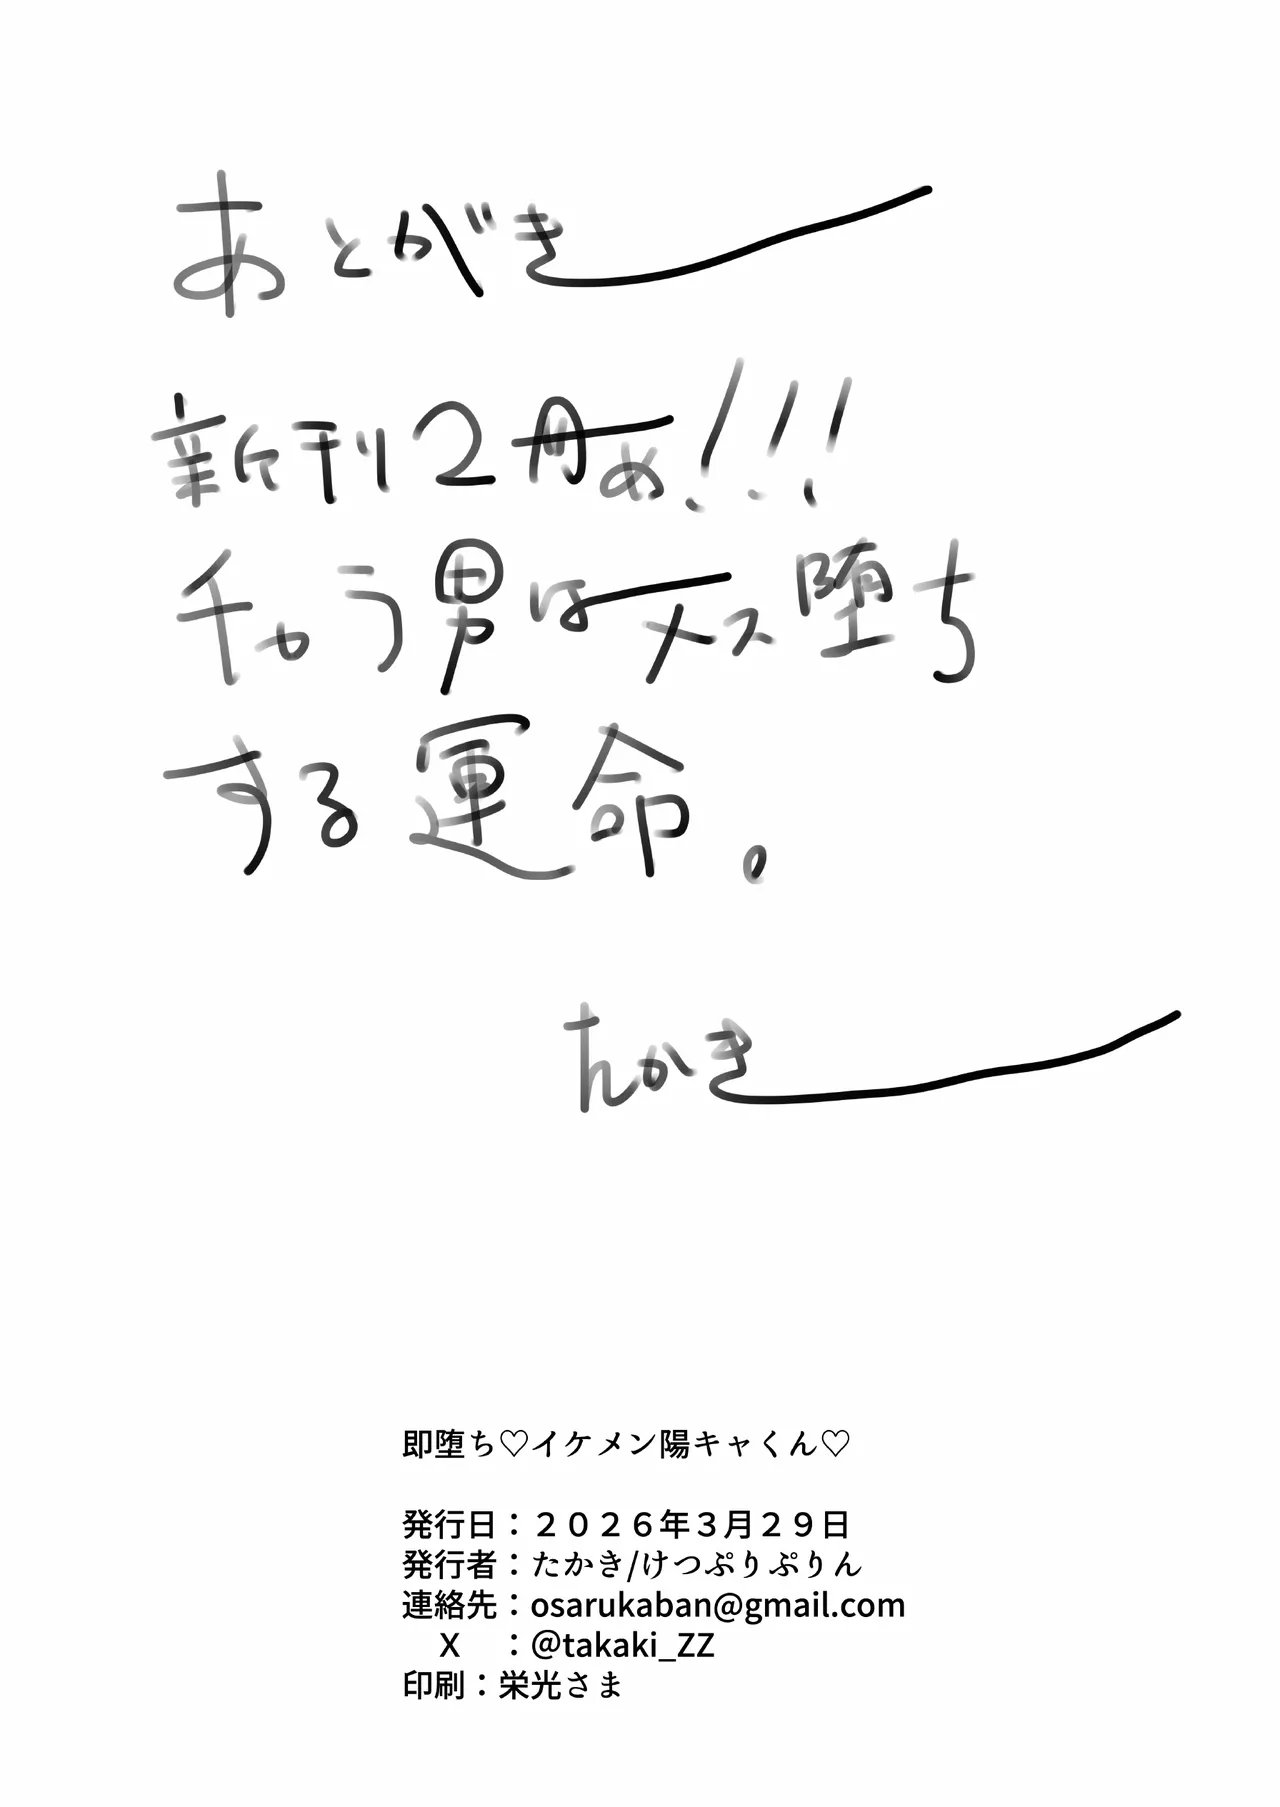 あとがき
新刊2冊め!!!
チャラ男はメス堕ち
する運命。
たかき
即堕ち♡イケメン陽キャくん♡
発行日：２０２６年３月２９日
発行者：たかき/けつぷりぷりん
連絡先：osarukaban@gmail.com
X　：@takaki_ZZ
印刷：栄光さま